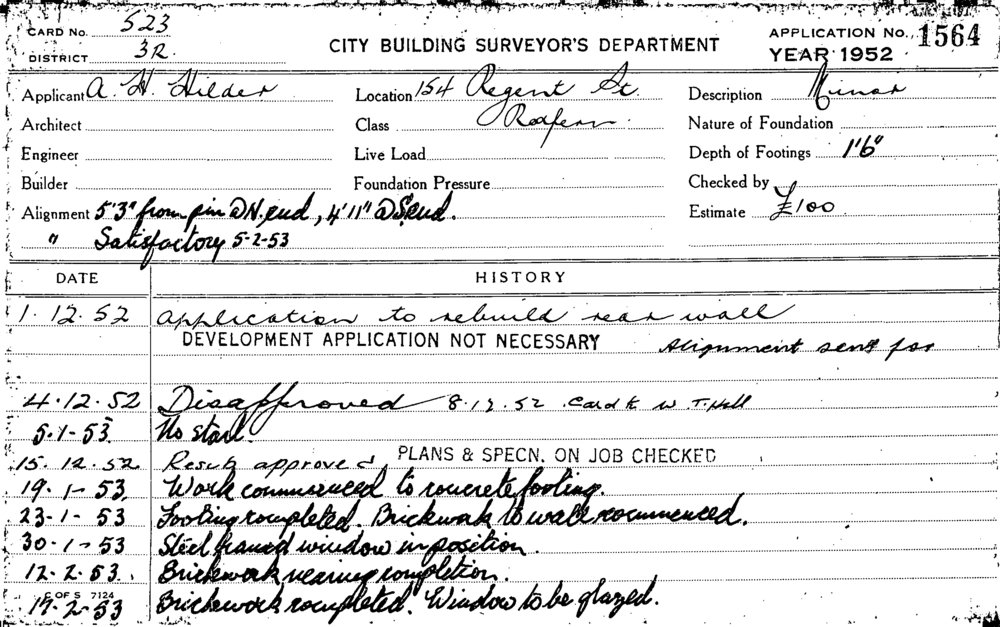 CARD No. 523
DISTRICT 3R
CITY BUILDING SURVEYOR'S DEPARTMENT
APPLICATION No. 1564
YEAR 1952
Applicant A. H. Hilder Location 154 Regent St. Description Minor
Architect Class Redfern. Nature of Foundation
Engineer Live Load Depth of Footings 1'6"
Builder Foundation Pressure Checked by
Alignment 5'3" from pin @ N. end, 4'11" @ S. end. Estimate £100
" Satisfactory 5-2-53
DATE HISTORY
1.12.52 Application to rebuild rear wall
DEVELOPMENT APPLICATION NOT NECESSARY Alignment sent for
4.12.52 Disapproved 8.12.52 Card to W. T. Hall
5-1-53. No start.
15.12.52 approved PLANS & SPECN. ON JOB CHECKED
19-1-53. Work commenced to concrete footing.
23-1-53 Footing completed. Brickwork to wall commenced.
30-1-53 Steel framed window in position.
12.2.53. Brickwork nearing completion.
C OF S 7124
19-2-53 Brickwork completed. Window to be glazed.